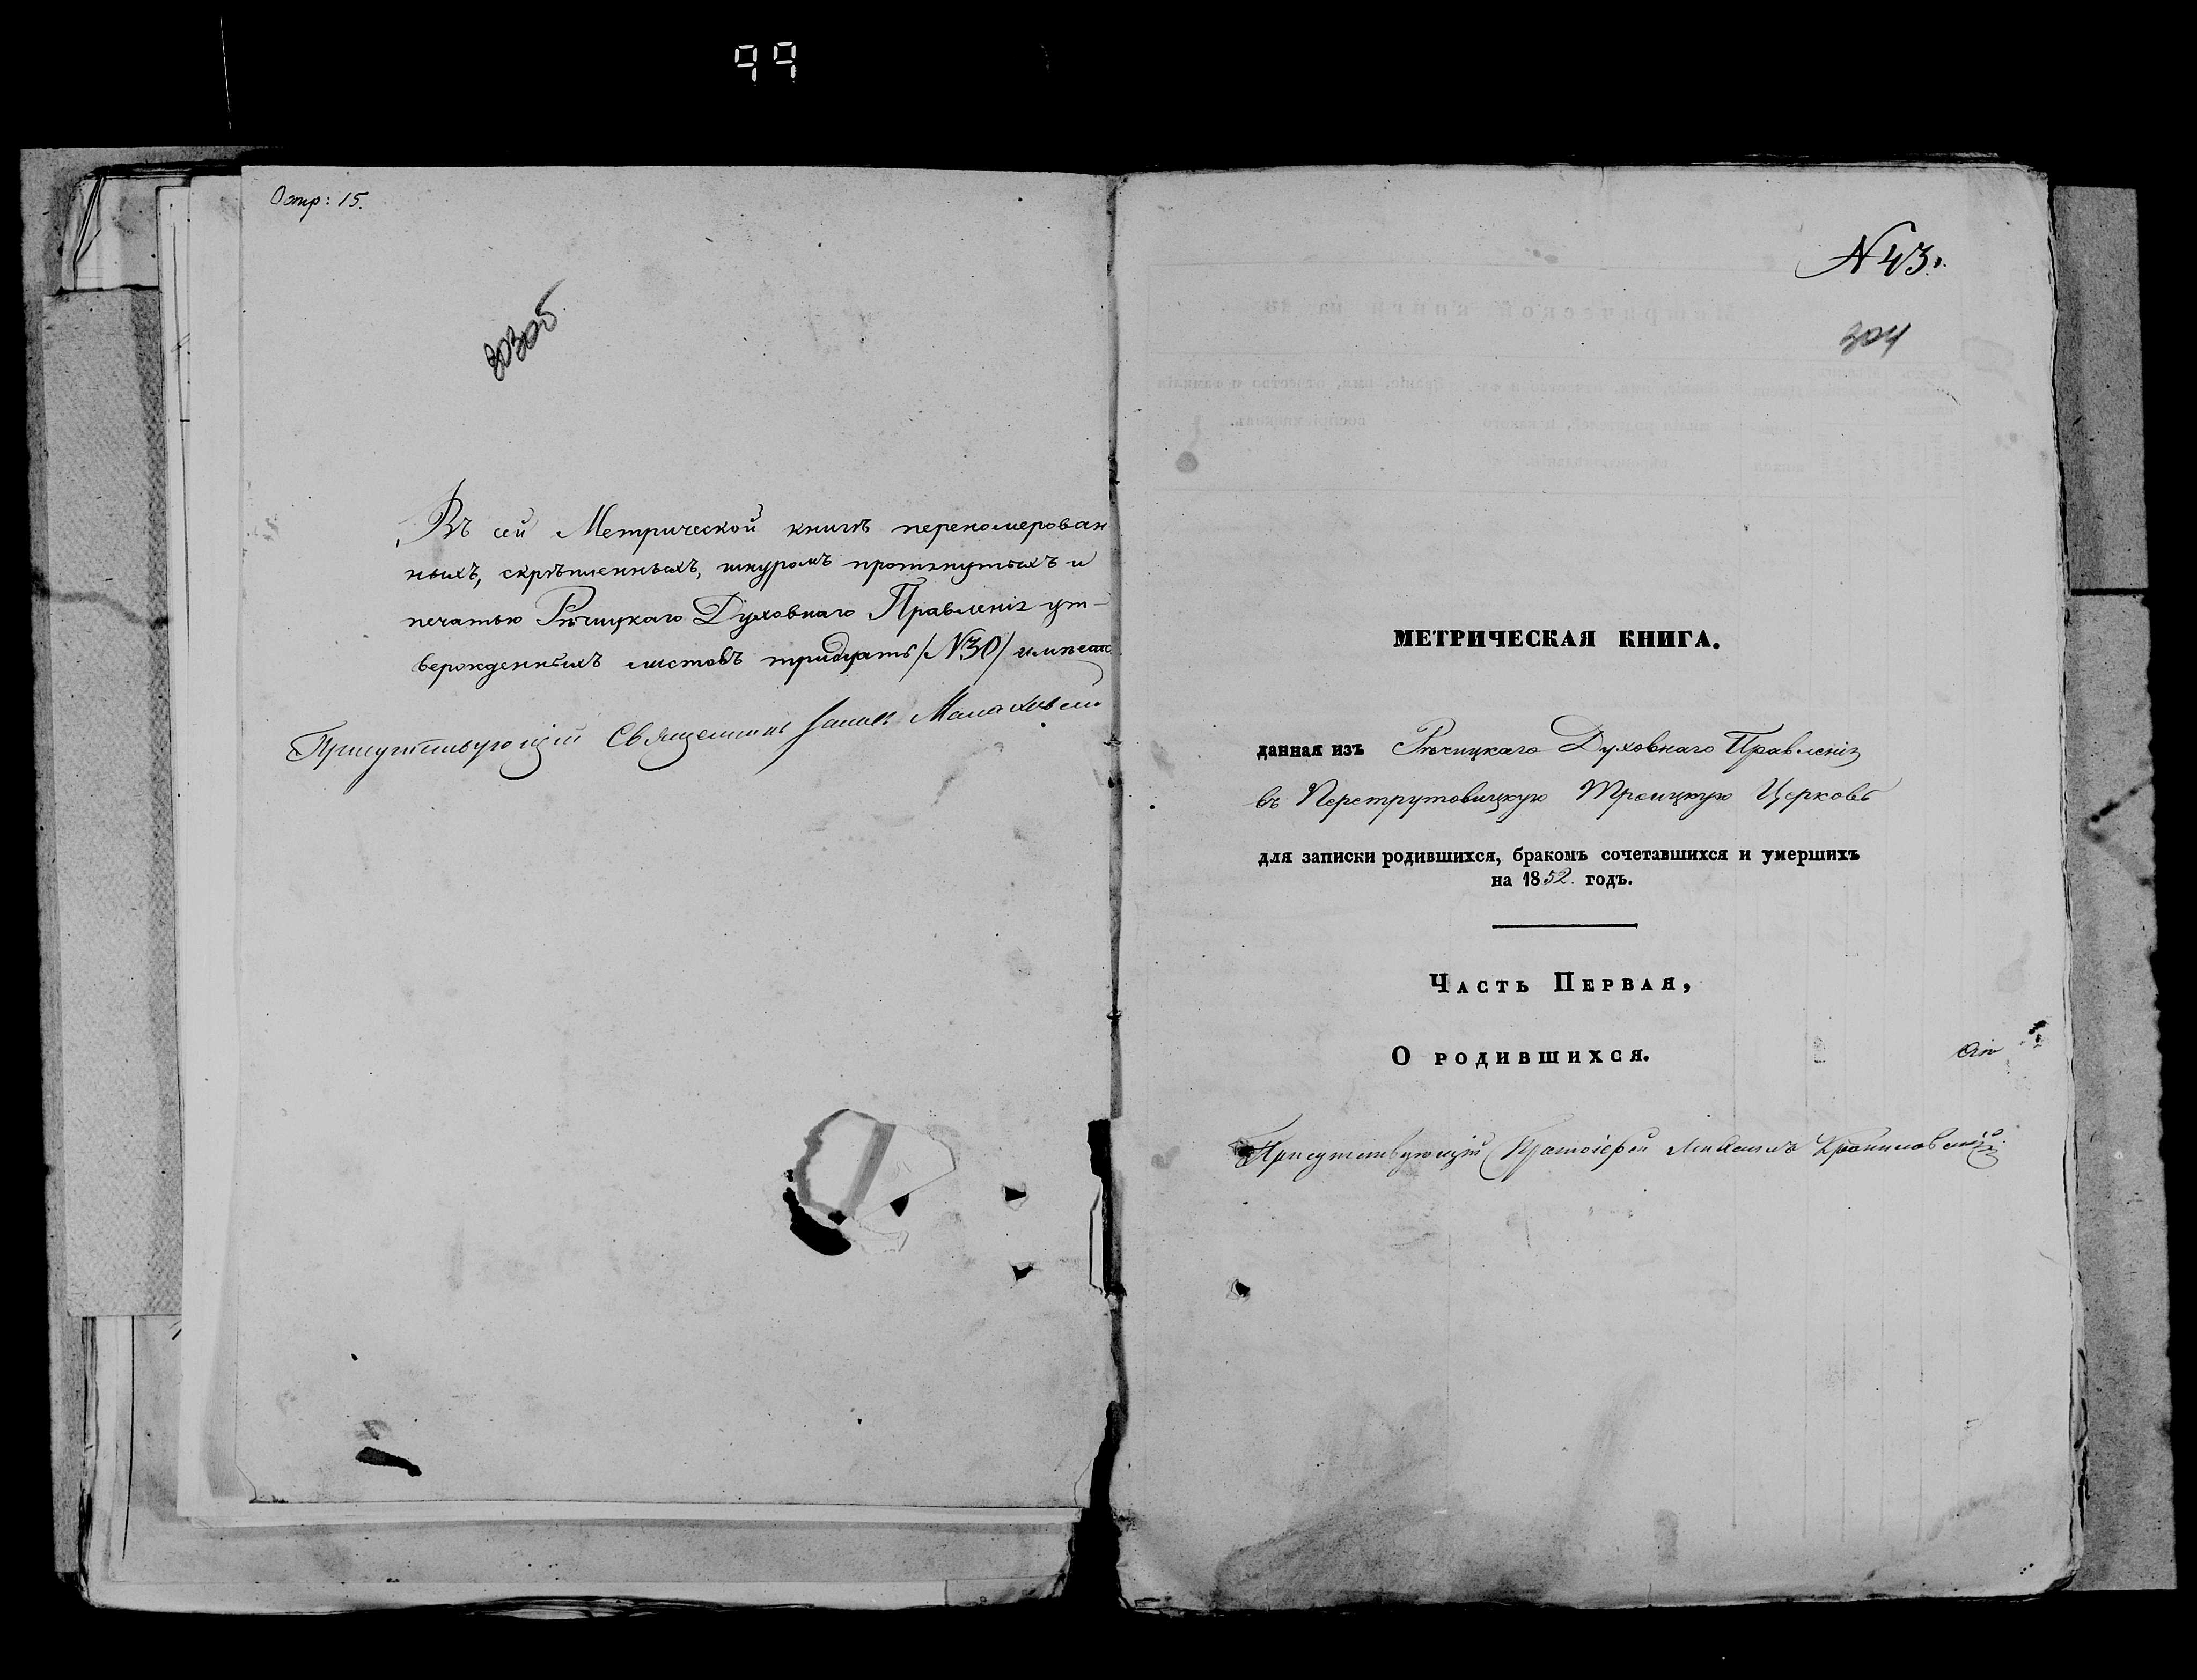 99
Остр: 15.
303об
Въ сей Метрической книгѣ перекомерован
ныхъ, скрѣпленныхъ, шнуромъ протянутыхъ и
печатью Рѣчицкаго Духовнаго Правленія ут-
вержденныхъ листовъ тридцать (N30) имѣетс
Присутствующій Священникъ
N 43.
304
МЕТРИЧЕСКАЯ КНИГА.
данная изъ Рѣчицкаго Духовнаго Правленія
въ Перетрутовицкую Троицкую Церковь
для записки родившихся, бракомъ сочетавшихся и умершихъ
на 1852. годъ.
ЧАСТЬ ПЕРВАЯ,
О РОДИВШИХСЯ.
Присутствующій Протоіерей